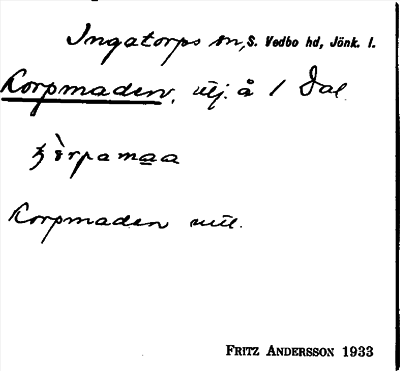 Ingatorps sn, S. Vedbo hd, Jönk. l.
Korpmaden, utj. å 1 Dal.
Korpmaden utj.
FRITZ ANDERSSON 1933